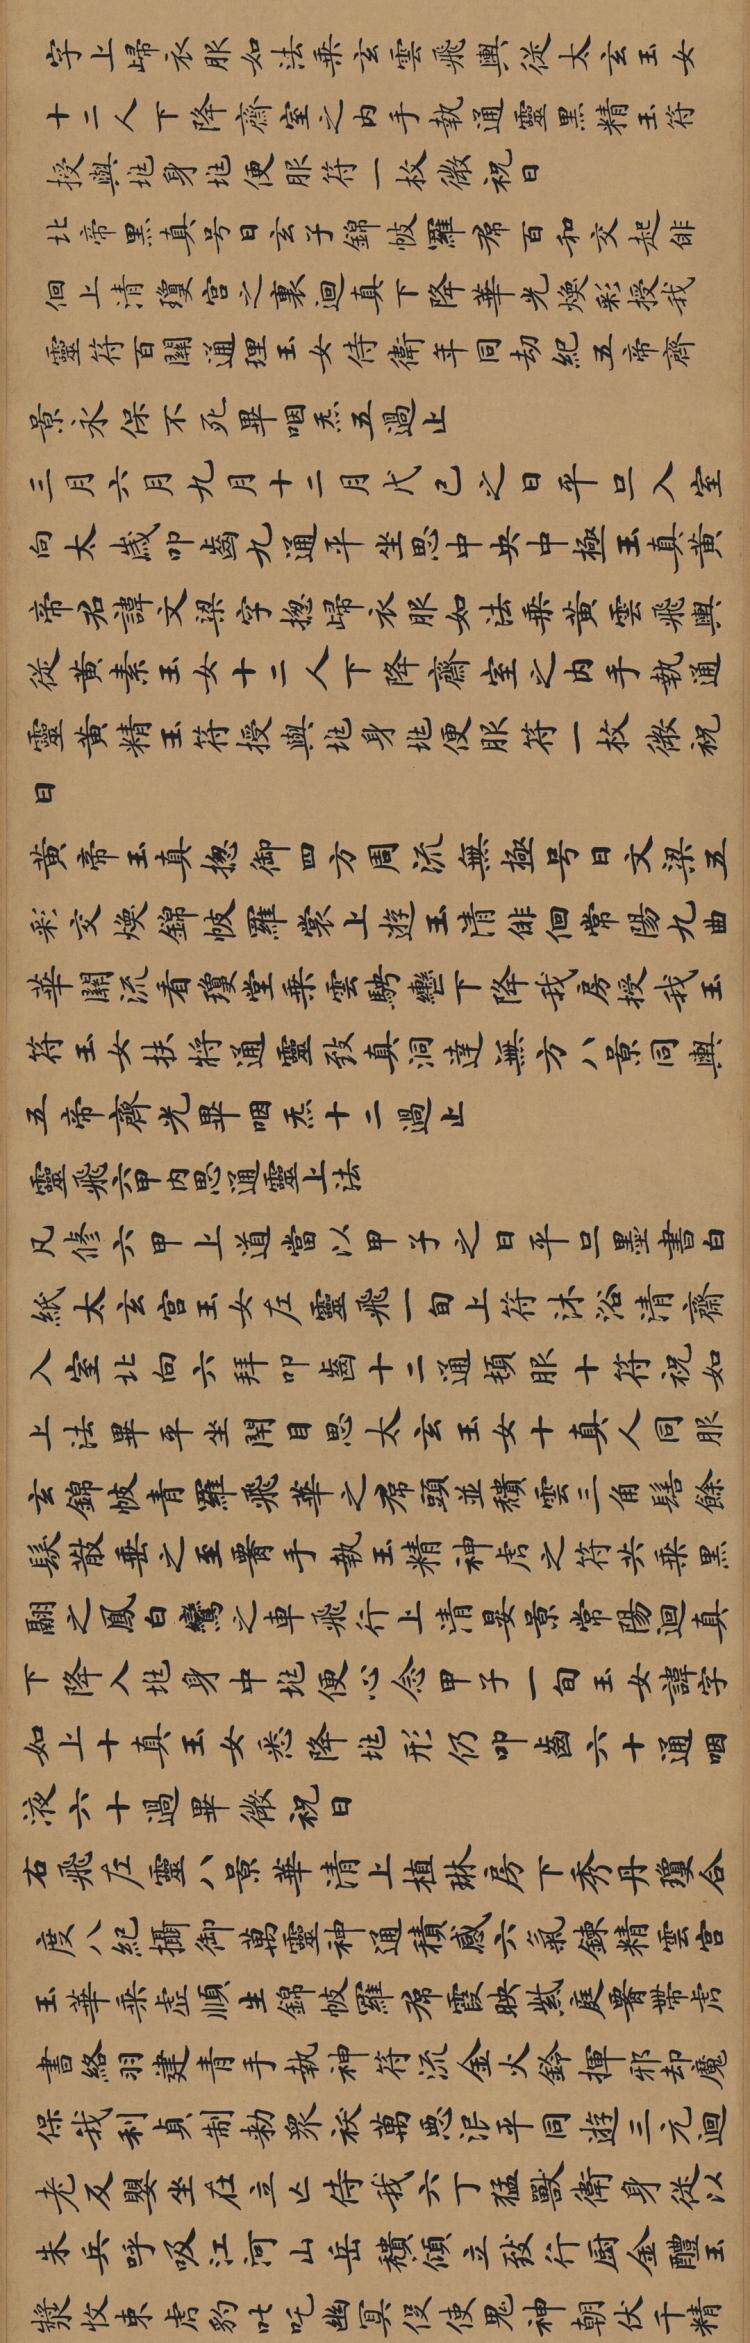 字上歸衣服如法乘玄雲飛輿從太玄玉女
十二人下降齋室之内手執通靈黑精玉符
授與兆身兆便服符一枚微祝曰
北帝黑真号曰玄子錦帔羅帬百和交起俳
佪上清瓊宮之裏迴真下降華光煥彩授我
靈符百關通理玉女侍衛年同劫紀五帝齊
景永保不死畢咽炁五過止
三月六月九月十二月戊己之日平旦入室
向太歲叩齒九通平坐思中央中極玉真黃
帝君諱文梁字揔歸衣服如法乘黃雲飛輿
從黃素玉女十二人下降齋室之内手執通
靈黃精玉符授與兆身兆便服符一枚微祝
曰
黃帝玉真揔御四方周流無極号曰文梁五
彩交煥錦帔羅裳上遊玉清俳佪常陽九曲
華關流看瓊堂乘雲騁轡下降我房授我玉
符玉女扶將通靈致真洞達無方八景同輿
五帝齊光畢咽炁十二過止
靈飛六甲内思通靈上法
凡修六甲上道當以甲子之日平旦墨書白
紙太玄宮玉女左靈飛一旬上符沐浴清齋
入室北向六拜叩齒十二通頓服十符祝如
上法畢平坐閉目思太玄玉女十真人同服
玄錦帔青羅飛華之帬頭並頹雲三角髻餘
髮散垂之至署手執玉精神虎之符共乘黑
翮之鳳白鸞之車飛行上清晏景常陽迴真
下降入兆身中兆便心念甲子一旬玉女諱字
如上十真玉女悉降兆形仍叩齒六十通咽
液六十過畢微祝曰
右飛左靈八景華清上植琳房下秀丹瓊合
度八紀攝御萬靈神通積感六氣鍊精雲宮
玉華乘虛順生錦帔羅帬霞映紫庭署帶虎
書絡羽建青手執神符流金火鈴揮邪却魔
保我利貞制勑衆祅萬惡泯平同遊三元迴
老反嬰坐在立亡侍我六丁猛獸衛身從以
朱兵呼吸江河山岳頹傾立致行厨金醴玉
漿收束虎豹叱吒幽冥役使鬼神朝伏千精